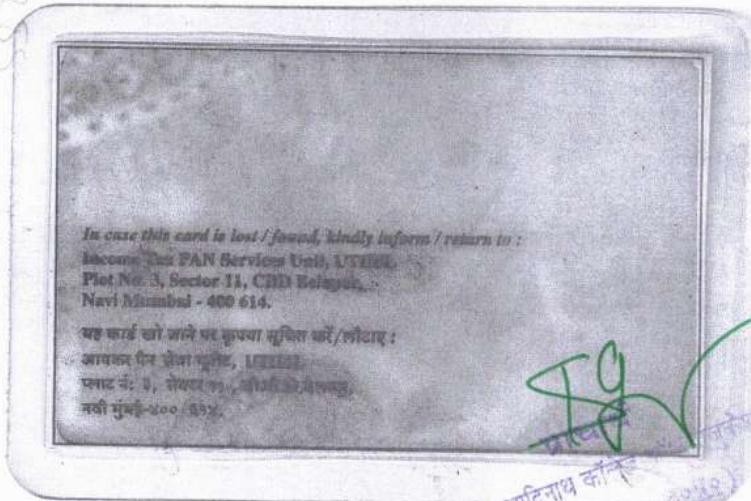 In case this card is lost / found, kindly inform / return to :
Income Tax PAN Services Unit, UTIISL
Plot No. 3, Sector 11, CBD Belapur,
Navi Mumbai - 400 614.
यह कार्ड खो जाने पर कृपया सूचित करें/लौटाए :
आयकर पैन सेवा यूनीट, UTIISL
प्लाट नं: ३, सेक्टर ११, सी.बी.डी.बेलापूर,
नवी मुंबई-४०० ६१४.
प्राचार्य